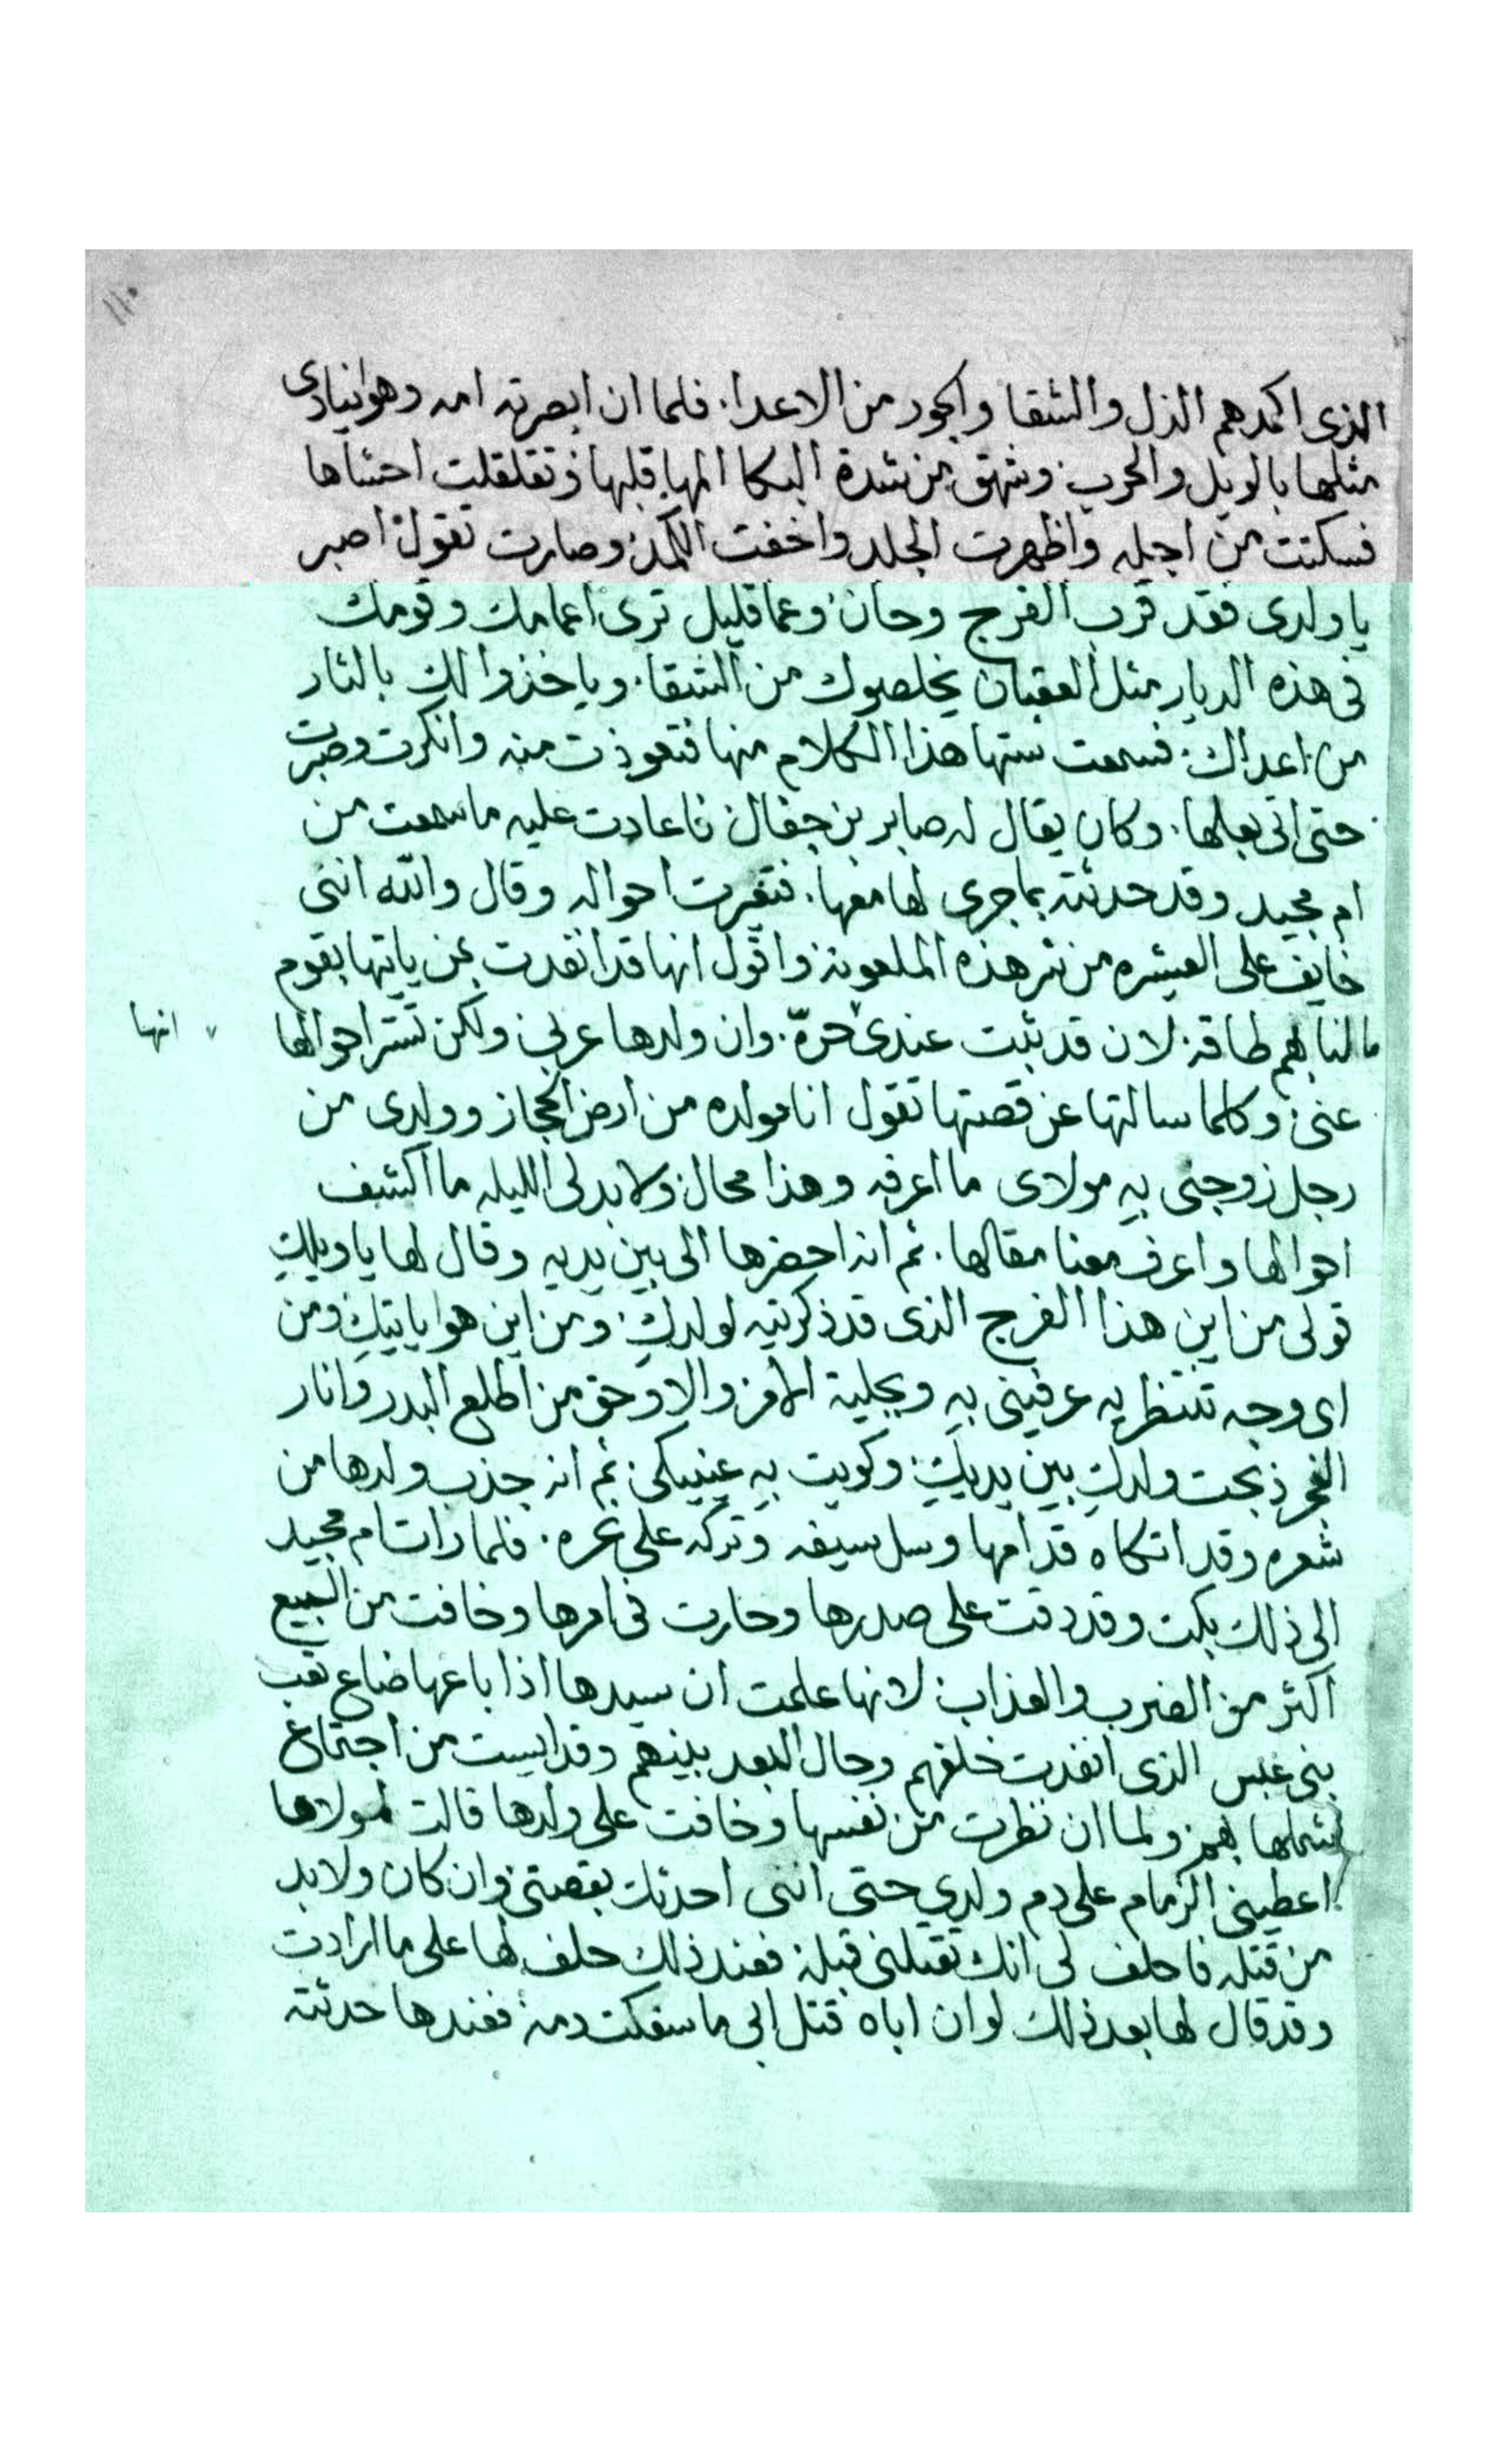 ١١٠
الذى اكمدهم الذل والشقا والجور من الاعدا. فلما ان ابصرته امه وهو ينادى
مثلها بالويل والحرب. وشهق من شدة البكا المها قلبها وتقلقلت احشاها
فسكتت من اجله واظهرت الجلد واخفت الكمد وصارت تقول اصبر
يا ولدى فقد قرب الفرج وحان وعما قليل ترى اعمامك وقومك
فى هذه الديار مثل العقبان يخلصوك من الشقا. وياخذوا لك بالثار
من اعداك. فسمعت ستها هذا الكلام منها فتعوذت منه وانكرت وصبرت
حتى اتى بعلها. وكان يقال له صابر بن جفال فاعادت عليه ما سمعت من
ام مجيد وقد حدثته بما جرى لها معها. فتغيرت احواله وقال والله اننى
خايف على العشيره من شر هذه الملعونه واقول انها قد انفدت لمن ياتيها بقوم
ما لنا بهم طاقه. لان قد ثبت عندى حرّه. وان ولدها عربى ولكن تستر احوالها
انها
عنى وكلما سالتها عن قصتها تقول انا مولده من ارض الحجاز وولدى من
رجل زوجنى به مولاى ما اعرفه وهذا محال ولا بد لى الليله ما اكشف
احوالها واعرف معنا مقالها. ثم انه احضرها الى بين يديه وقال لها يا ويلكِ
قولى من اين هذا الفرج الذى قد ذكرتيه لولدكِ. ومن اين هو ياتيكِ ومن
اى وجه تنتظريه عرفينى به وبجلية الامر والا وحق من اطلع البدر وانار
الفجر ذبحت ولدكِ بين يديكِ وكويت به عينيكى. ثم انه جذب ولدها من
شعره وقد اتكاه قدامها وسل سيفه وتركه على نحره. فلما رات ام مجيد
الى ذلك بكت وقد دقت على صدرها وحارت فى امرها وخافت من البيع
اكثر من الضرب والعذاب لانها علمت ان سيدها اذا باعها ضاع تعب
بنى عبس الذى انفدت خلفهم وحال البعد بينهم وقد ايست من اجتماع
شملها بهم. ولما ان نظرت من نفسها وخافت على ولدها قالت لمولاها
اعطينى الزمام على دم ولدي حتى اننى احدثك بقصتى وان كان ولا بد
من قتله فاحلف لى انك تقتلنى قبله فعند ذلك حلف لها على ما ارادت
وقد قال لها بعد ذلك لو ان اباه قتل ابى ما سفكت دمه فعندها حدثته